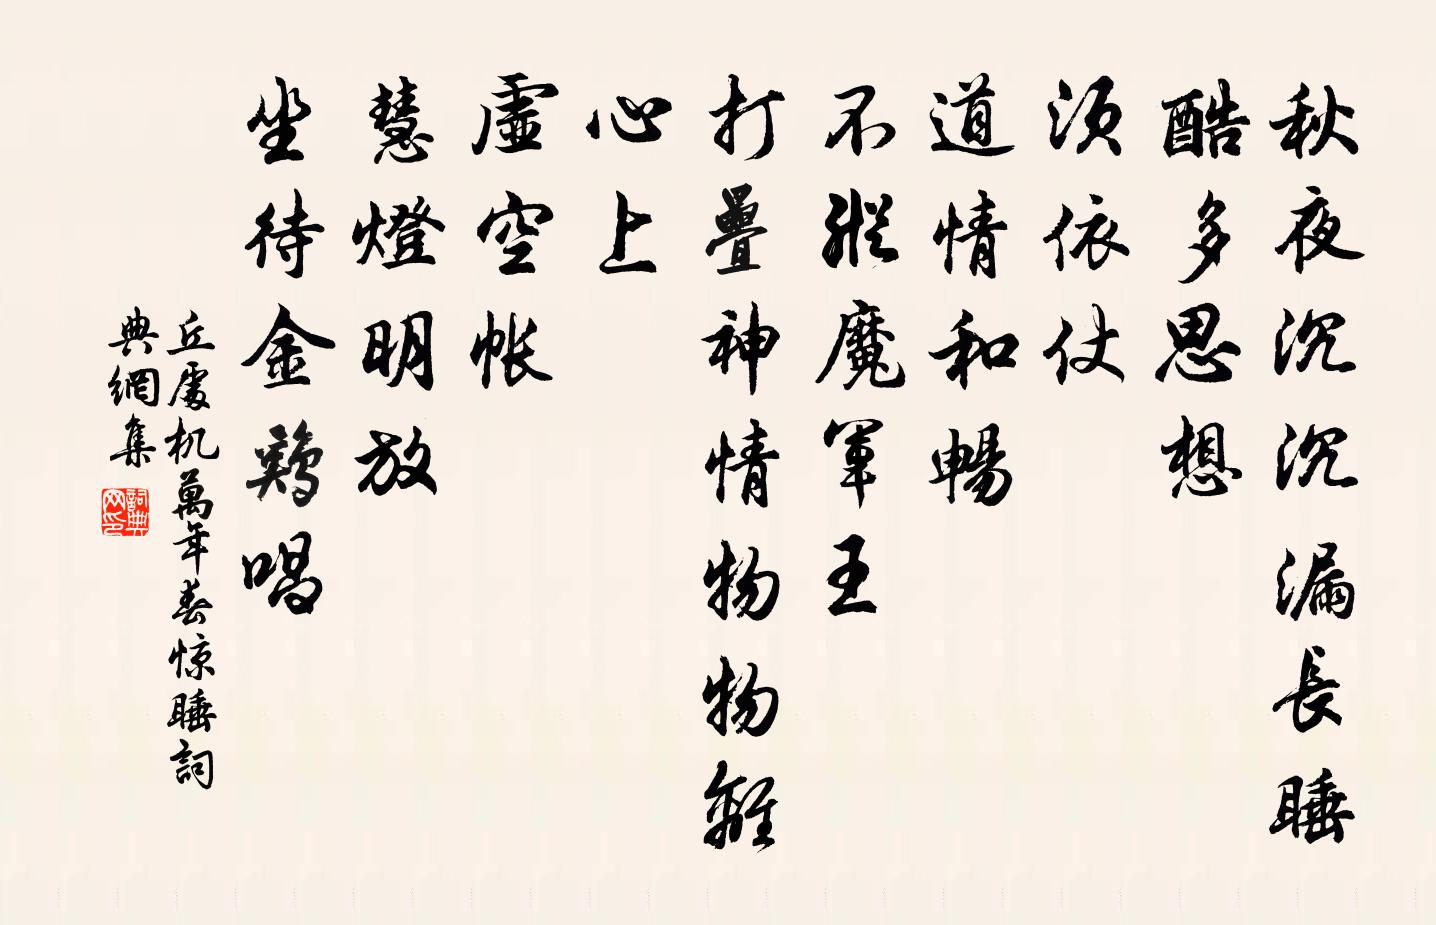 秋夜沉沉漏長睡
酷多思想
須依仗
道情和暢
不縱魔軍王
打疊神情物物離
心上
虛空帐
慧燈明放
坐待金鷄唱
丘處机萬年春惊睡詞
典網集
詞典网印